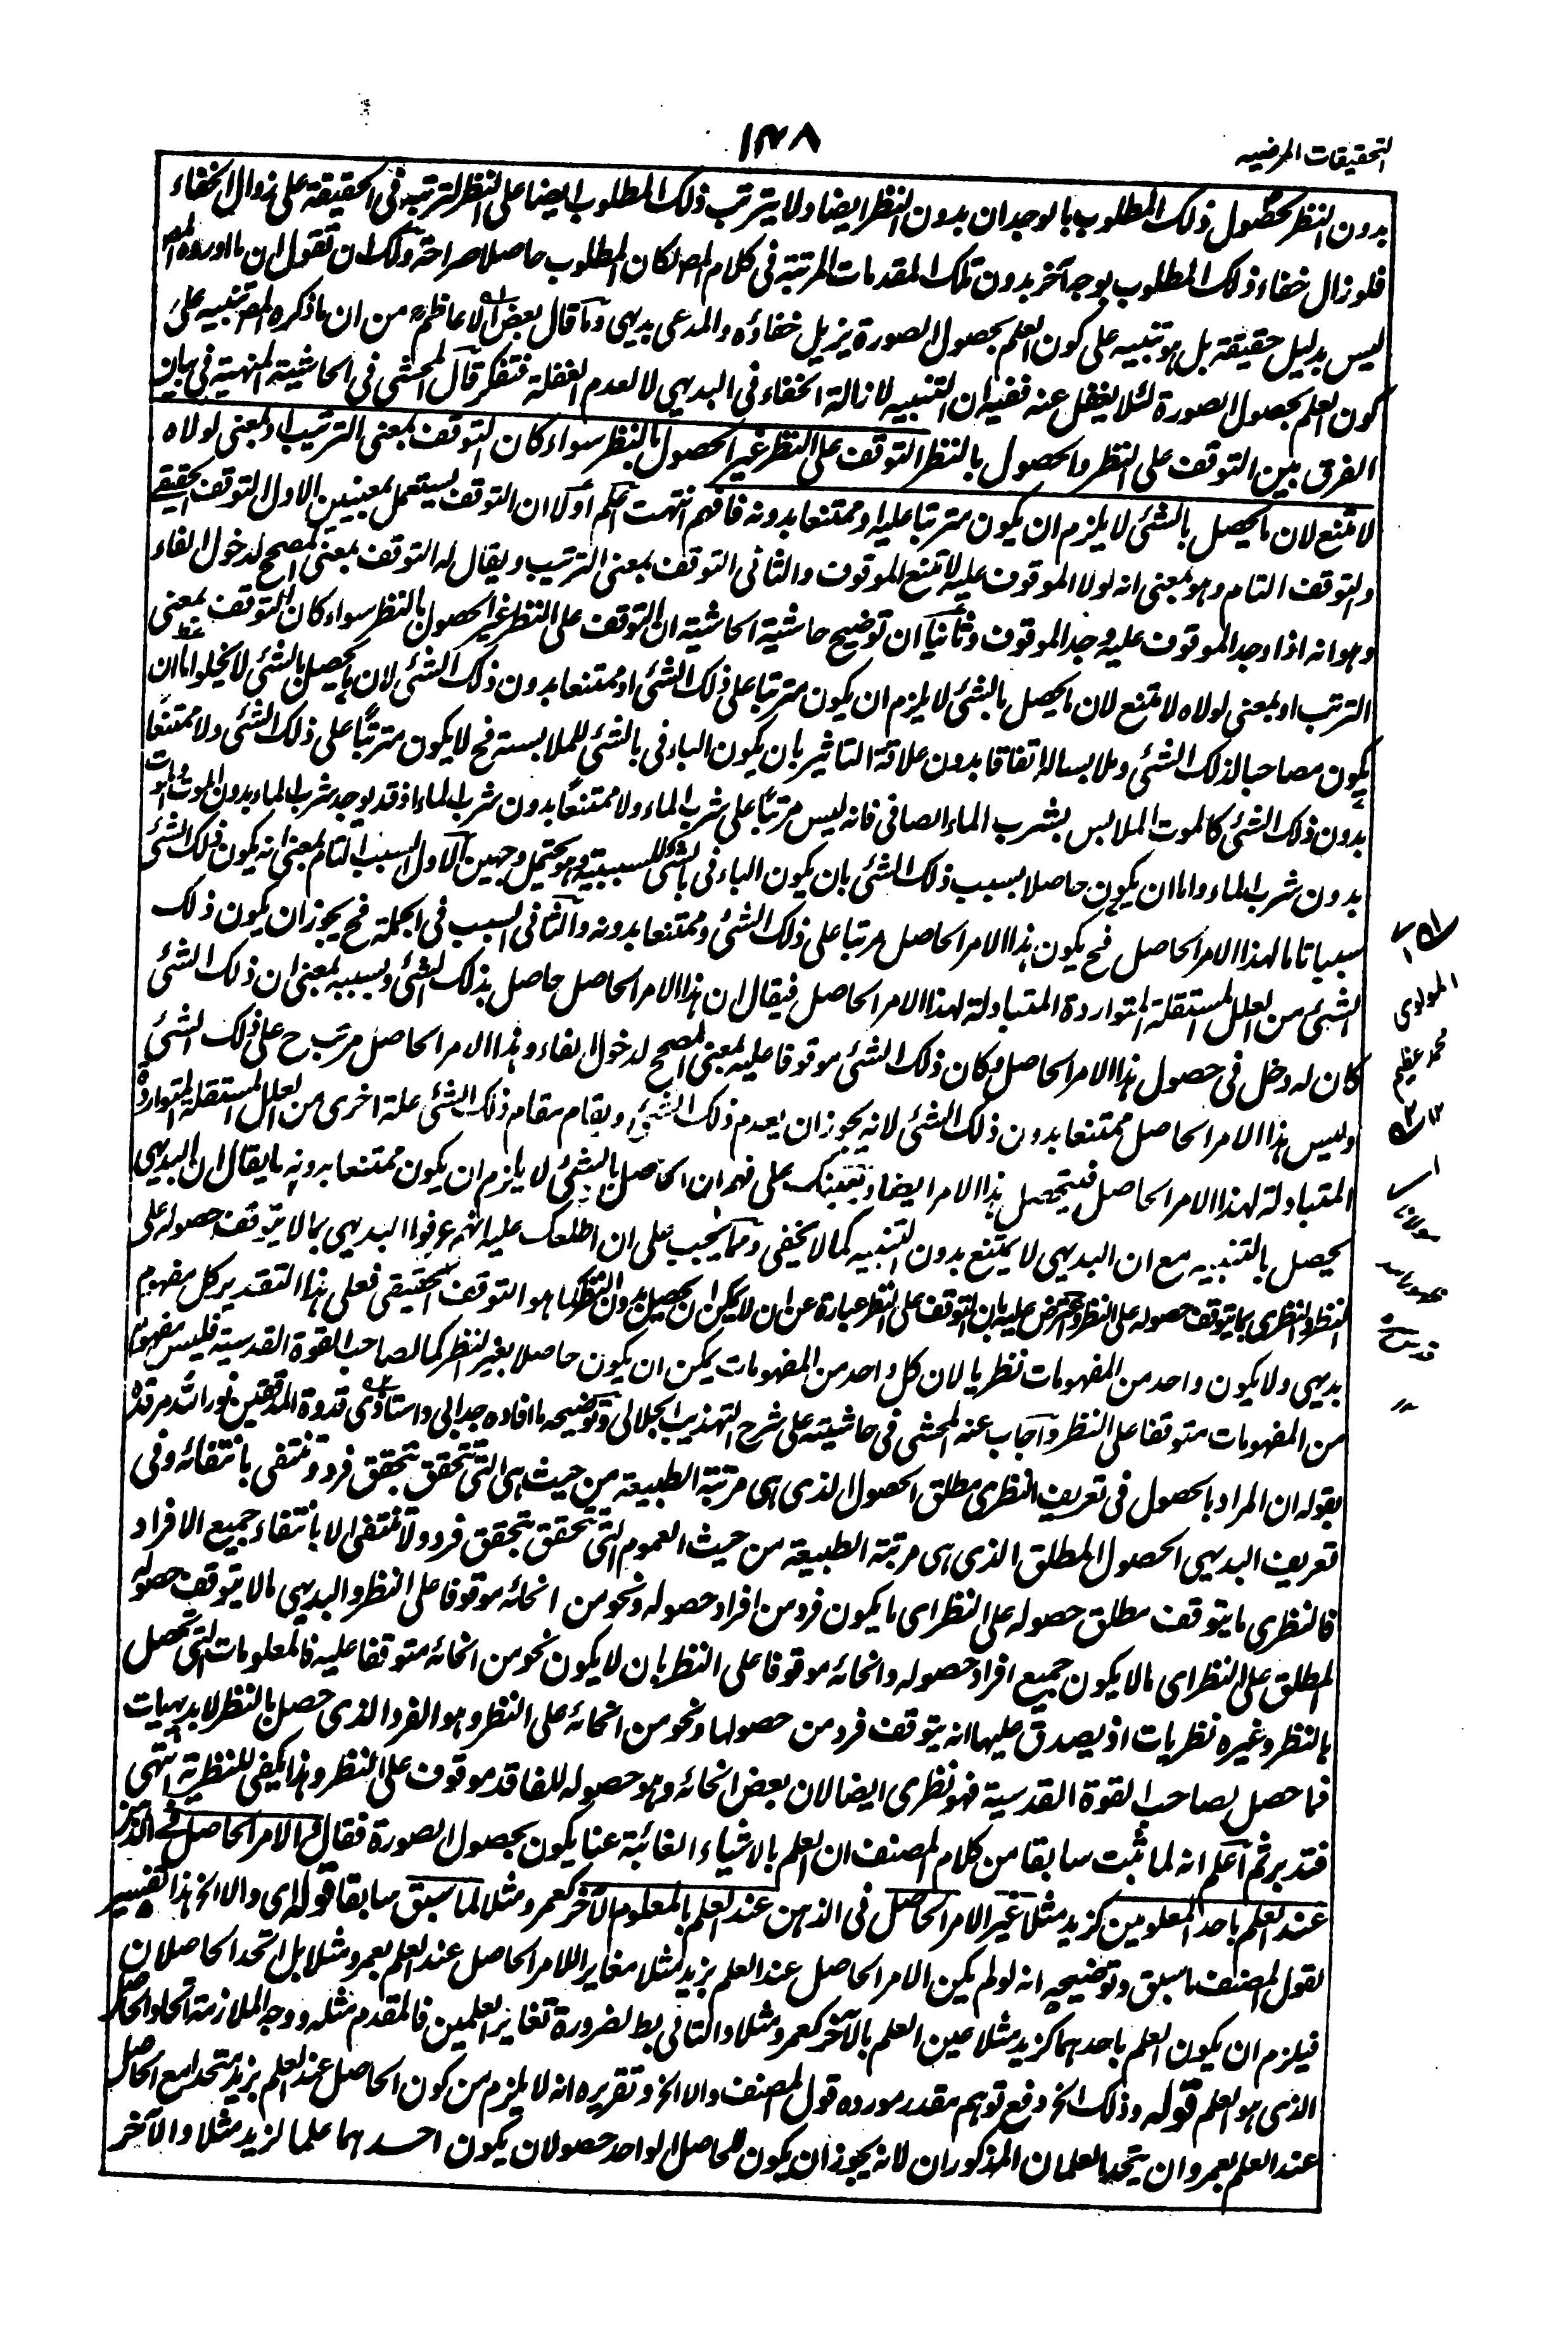 التحقيقات المرضيه
١٤٨
بدون النظر كحصول ذلك المطلوب بالوجدان بدون النظر ايضا ولا يترتب ذلك المطلوب ايضا على النظر لترتبه فى الحقيقة على زوال الخفاء
فلو زال خفاء ذلك المطلوب بوجه آخر بدون تلك المقدمات المرتبة فى كلام المص لكان المطلوب حاصلا صراحة ولك ان تقول ان ما اورده المص
ليس بدليل حقيقة بل هو تنبيه على كون العلم بحصول الصورة يزيل خفاؤه والمدعى بديهى وما قال بعض الاعاظم من ان ما ذكره المص تنبيه على
كون العلم بحصول الصورة لئلا يغفل عنه ففيه ان التنبيه لازالة الخفاء فى البديهى لا لعدم الغفلة فتفكر قال المحشى فى الحاشية المنهية فى بيان
الفرق بين التوقف على النظر والحصول بالنظر التوقف على النظر غير الحصول بالنظر سواء كان التوقف بمعنى الترتب او بمعنى لولاه
لا متنع لان ما يحصل بالشئ لا يلزم ان يكون مترتبا عليه او ممتنعا بدونه فافهم انتهت اعلم اولا ان التوقف يستعمل بمعنيين الاول التوقف الحقيقى
والتوقف التام وهو بمعنى انه لولا الموقوف عليه لامتنع الموقوف والثانى التوقف بمعنى الترتب ويقال له التوقف بمعنى المصحح لدخول الفاء
وهو انه اذا وجد الموقوف عليه وجد الموقوف وثانيا ان توضيح حاشية الحاشية ان التوقف على النظر غير الحصول بالنظر سواء كان التوقف بمعنى
الترتب او بمعنى لولاه لامتنع لان ما يحصل بالشئ لا يلزم ان يكون مترتبا على ذلك الشئ او ممتنعا بدون ذلك الشئ لان ما يحصل بالشئ لا يخلوا اما ان
يكون مصاحبا لذلك الشئ وملابسا له اتفاقا بدون علاقة التاثير بان يكون الباء فى بالشئ للملابسة فح لا يكون مترتبا على ذلك الشئ ولا ممتنعا
بدون ذلك الشئ كالموت الملابس بشرب الماء الصافى فانه ليس مرتبا على شرب الماء ولا ممتنعا بدون شرب الماء اذ قد يوجد شرب الماء بدون الموت والموت
بدون شرب الماء واما ان يكون حاصلا بسبب ذلك الشئ بان يكون الباء فى بالشئ للسببية وهو يحتمل وجهين الاول السبب التام بمعنى انه يكون ذلك الشئ
سببا تاما لهذا الامر الحاصل فح يكون هذا الامر الحاصل مرتبا على ذلك الشئ وممتنعا بدونه والثانى السبب فى الجملة فح يجوز ان يكون ذلك
الشئ من العلل المستقلة المتواردة المتبادلة لهذا الامر الحاصل فيقال ان هذا الامر الحاصل حاصل بذلك الشئ وبسببه بمعنى ان ذلك الشئ
كان له دخل فى حصول هذا الامر الحاصل وكان ذلك الشئ موقوفا عليه بمعنى المصحح لدخول الفاء وهذا الامر الحاصل مرتب ح على ذلك الشئ
وليس هذا الامر الحاصل ممتنعا بدون ذلك الشئ لانه يجوز ان يعدم ذلك الشئ ويقام مقام ذلك الشئ علة اخرى من العلل المستقلة المتواردة
المتبادلة لهذا الامر الحاصل فيتحصل هذا الامر ايضا ويعينك على فهم ان الحاصل بالشئ لا يلزم ان يكون ممتنعا بدونه ما يقال ان البديهى
يحصل بالتنبيه مع ان البديهى لا يمتنع بدون التنبيه كما لا يخفى ومما يجب على ان اطلعك عليه انهم عرفوا البديهى بما لا يتوقف حصوله على
النظر والنظرى بما يتوقف حصوله على النظر واعترض عليه بان التوقف على النظر عبارة عن ان لا يمكن ان يحصل بدون النظر كما هو التوقف الحقيقى فعلى هذا التقدير كل مفهوم
بديهى ولا يكون واحد من المفهومات نظريا لان كل واحد من المفهومات يمكن ان يكون حاصلا بغير النظر كما لصاحب القوة القدسية فليس مفهوم
من المفهومات متوقفا على النظر واجاب عنه المحشى فى حاشيته على شرح التهذيب الجلالى وتوضيحه ما افاده جد ابى واستاذى قدوة المدققين نور الله مرقده
بقوله ان المراد بالحصول فى تعريف النظرى مطلق الحصول الذى هى مرتبة الطبيعة من حيث هى التى تتحقق بتحقق فرد وتنتفى بانتفائه وفى
تعريف البديهى الحصول المطلق الذى هى مرتبة الطبيعة من حيث العموم التى تتحقق بتحقق فرد ولا تنتفى الا بانتفاء جميع الافراد
فالنظرى ما يتوقف مطلق حصوله على النظر اى ما يكون فرد من افراد حصوله ونحو من انحائه موقوفا على النظر والبديهى ما لا يتوقف حصوله
المطلق على النظر اى ما لا يكون جميع افراد حصوله وانحائه موقوفا على النظر بان لا يكون نحو من انحائه متوقفا عليه فالمعلومات التى تحصل
بالنظر وغيره نظريات اذ يصدق عليها انه يتوقف فرد من حصولها ونحو من انحائه على النظر وهو الفرد الذى حصل بالنظر لا بديهيات
فما حصل لصاحب القوة القدسية فهو نظرى ايضا لان بعض انحائه وهو حصوله للفاقد موقوف على النظر وهذا يكفى للنظرية انتهى
فتدبر ثم اعلم انه لما ثبت سابقا من كلام المصنف ان العلم بالاشياء الغائبة عنا يكون بحصول الصورة فقال والامر الحاصل فى الذهن
عند العلم باحد المعلومين كزيد مثلا غير الامر الحاصل فى الذهن عند العلم بالمعلوم الآخر كعمرو مثلا لما سبق سابقا قوله اى والا الخ هذا تفسير
لقول المصنف ما سبق وتوضيحه انه لو لم يكن الامر الحاصل عند العلم بزيد مثلا مغايرا للامر الحاصل عند العلم بعمرو مثلا بل اتحد الحاصلان
فيلزم ان يكون العلم باحدهما كزيد مثلا عين العلم بالآخر كعمرو مثلا والتالى بط لضرورة تغاير العلمين فالمقدم مثله ووجه الملازمة اتحاد الحاصل
الذى هو العلم قوله وذلك الخ دفع توهم مقدر مورده قول المصنف والا الخ وتقريره انه لا يلزم من كون الحاصل عند العلم بزيد متحدا مع الحاصل
عند العلم بعمرو ان يتحد العلمان المذكوران لانه يجوز ان يكون للحاصل الواحد حصولان يكون احدهما علما لزيد مثلا والآخر
المولوى
محمد عظيم
مولانا